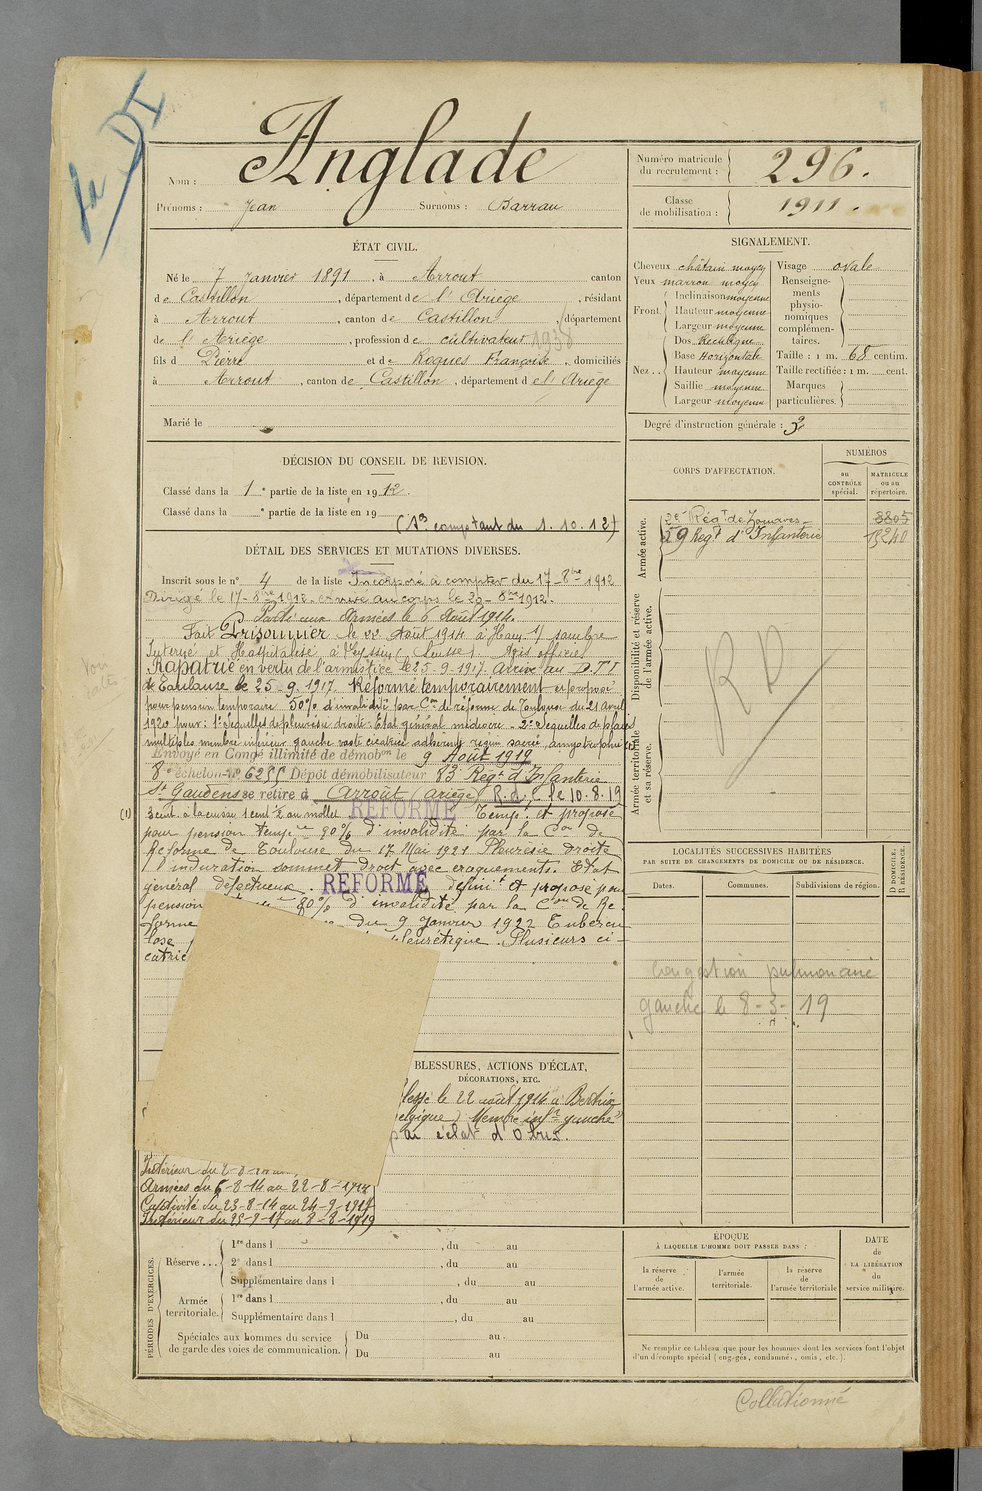 DI
Nom : Anglade
Prénoms : Jean Surnoms : Barrau
Numéro matricule du recrutement : 296.
Classe de mobilisation : 1911.
ÉTAT CIVIL.
Né le 7 Janvier 1891, à Arrout canton
de Castillon, département de l'Ariège, résidant
à Arrout, canton de Castillon, département
de l'Ariège, profession de cultivateur 1938
fils d Pierre et de Roques Françoise, domiciliés
à Arrout, canton de Castillon, département de l'Ariège
Marié le
SIGNALEMENT.
Cheveux châtain moyen
Yeux marron moyen
Front. Inclinaison moyenne
Hauteur moyenne
Largeur moyenne
Nez... Dos Rectiligne
Base Horizontale
Hauteur moyenne
Saillie moyenne
Largeur moyenne
Visage ovale
Renseignements physionomiques complémentaires.
Taille : 1 m. 68 centim.
Taille rectifiée : 1 m. cent.
Marques particulières.
Degré d'instruction générale : 3
DÉCISION DU CONSEIL DE REVISION.
Classé dans la 1e partie de la liste en 1912.
Classé dans la e partie de la liste en 19
(Ns comptant du 1.10.12)
CORPS D'AFFECTATION.
NUMÉROS
au CONTRÔLE spécial.
MATRICULE ou au répertoire.
Armée active.
2e Régt de Zouaves 3805
59 Régt d'Infanterie 15240
Disponibilité et réserve de l'armée active.
Armée territoriale et sa réserve.
RD
DÉTAIL DES SERVICES ET MUTATIONS DIVERSES.
Inscrit sous le n° 4 de la liste Incorporé à compter du 17-8bre 1912
Dirigé le 17-8bre 1912. arrivé au corps le 20-8bre 1912.
Parti aux Armées le 6 Août 1914.
Fait Prisonnier le 22 Août 1914 à Ham s/ Sambre
Interné et Hospitalisé à Leysin (Suisse). Avis officiel
Rapatrié en vertu de l'armistice le 25-9-1917. Arrivé au D.T.I
de Toulouse le 25-9-1917. Réformé temporairement et proposé
pour pension temporaire 50% d'invalidité par Con de réforme de Toulouse du 21 Avril
1920 pour : 1° Sequelles de pleurésie droite. Etat général médiocre - 2° Sequelles de plaies
multiples membre inférieur gauche vaste cicatrice adhérente région sacrée, amyotrophie (1)
Envoyé en Congé illimité de démobon le 9 Août 1919
8e échelon n° 6255 Dépôt démobilisateur 83 Régt d'Infanterie
St Gaudens se retire à Arrout (Ariège) R.d.C. le 10.8.19
(1) 3 cent. à la cuisse 1 cent ½ au mollet RÉFORMÉ Temp. et proposé
pour pension tempre 90% d'invalidité par la Con de
Réforme de Toulouse du 17 Mai 1921 Pleurésie droite
l'induration sommet droit avec craquements. Etat
général défectueux. RÉFORMÉ définit et proposé pour
pension 80% d'invalidité par la Con de Ré
forme du 9 Janvier 1922 Tubercu
lose pleurétique. Plusieurs ci-
catric
LOCALITÉS SUCCESSIVES HABITÉES
PAR SUITE DE CHANGEMENTS DE DOMICILE OU DE RÉSIDENCE.
Dates. Communes. Subdivisions de région. D DOMICILE. R RÉSIDENCE.
Congestion pulmonaire
gauche le 8-3-19
BLESSURES, ACTIONS D'ÉCLAT,
DÉCORATIONS, ETC.
lessé le 22 août 1914 à
elgique) Membre infr gauche
par éclat d'obus.
Intérieur du
Armées du 6-8-14 au 22-8-1914
Captivité du 23-8-14 au 24-9-1917
Intérieur du 25-9-17 au 8-8-1919
PÉRIODES D'EXERCICES.
Réserve... 1re dans l , du au
2e dans l , du au
Supplémentaire dans l , du au
Armée territoriale. 1re dans l , du au
Supplémentaire dans l , du au
Spéciales aux hommes du service de garde des voies de communication. Du au
Du au
ÉPOQUE
À LAQUELLE L'HOMME DOIT PASSER DANS :
la réserve de l'armée active.
l'armée territoriale.
la réserve de l'armée territoriale
DATE de LA LIBÉRATION du service militaire.
Ne remplir ce tableau que pour les hommes dont les services font l'objet
d'un décompte spécial (engagés, condamnés, omis, etc.).
Collationné